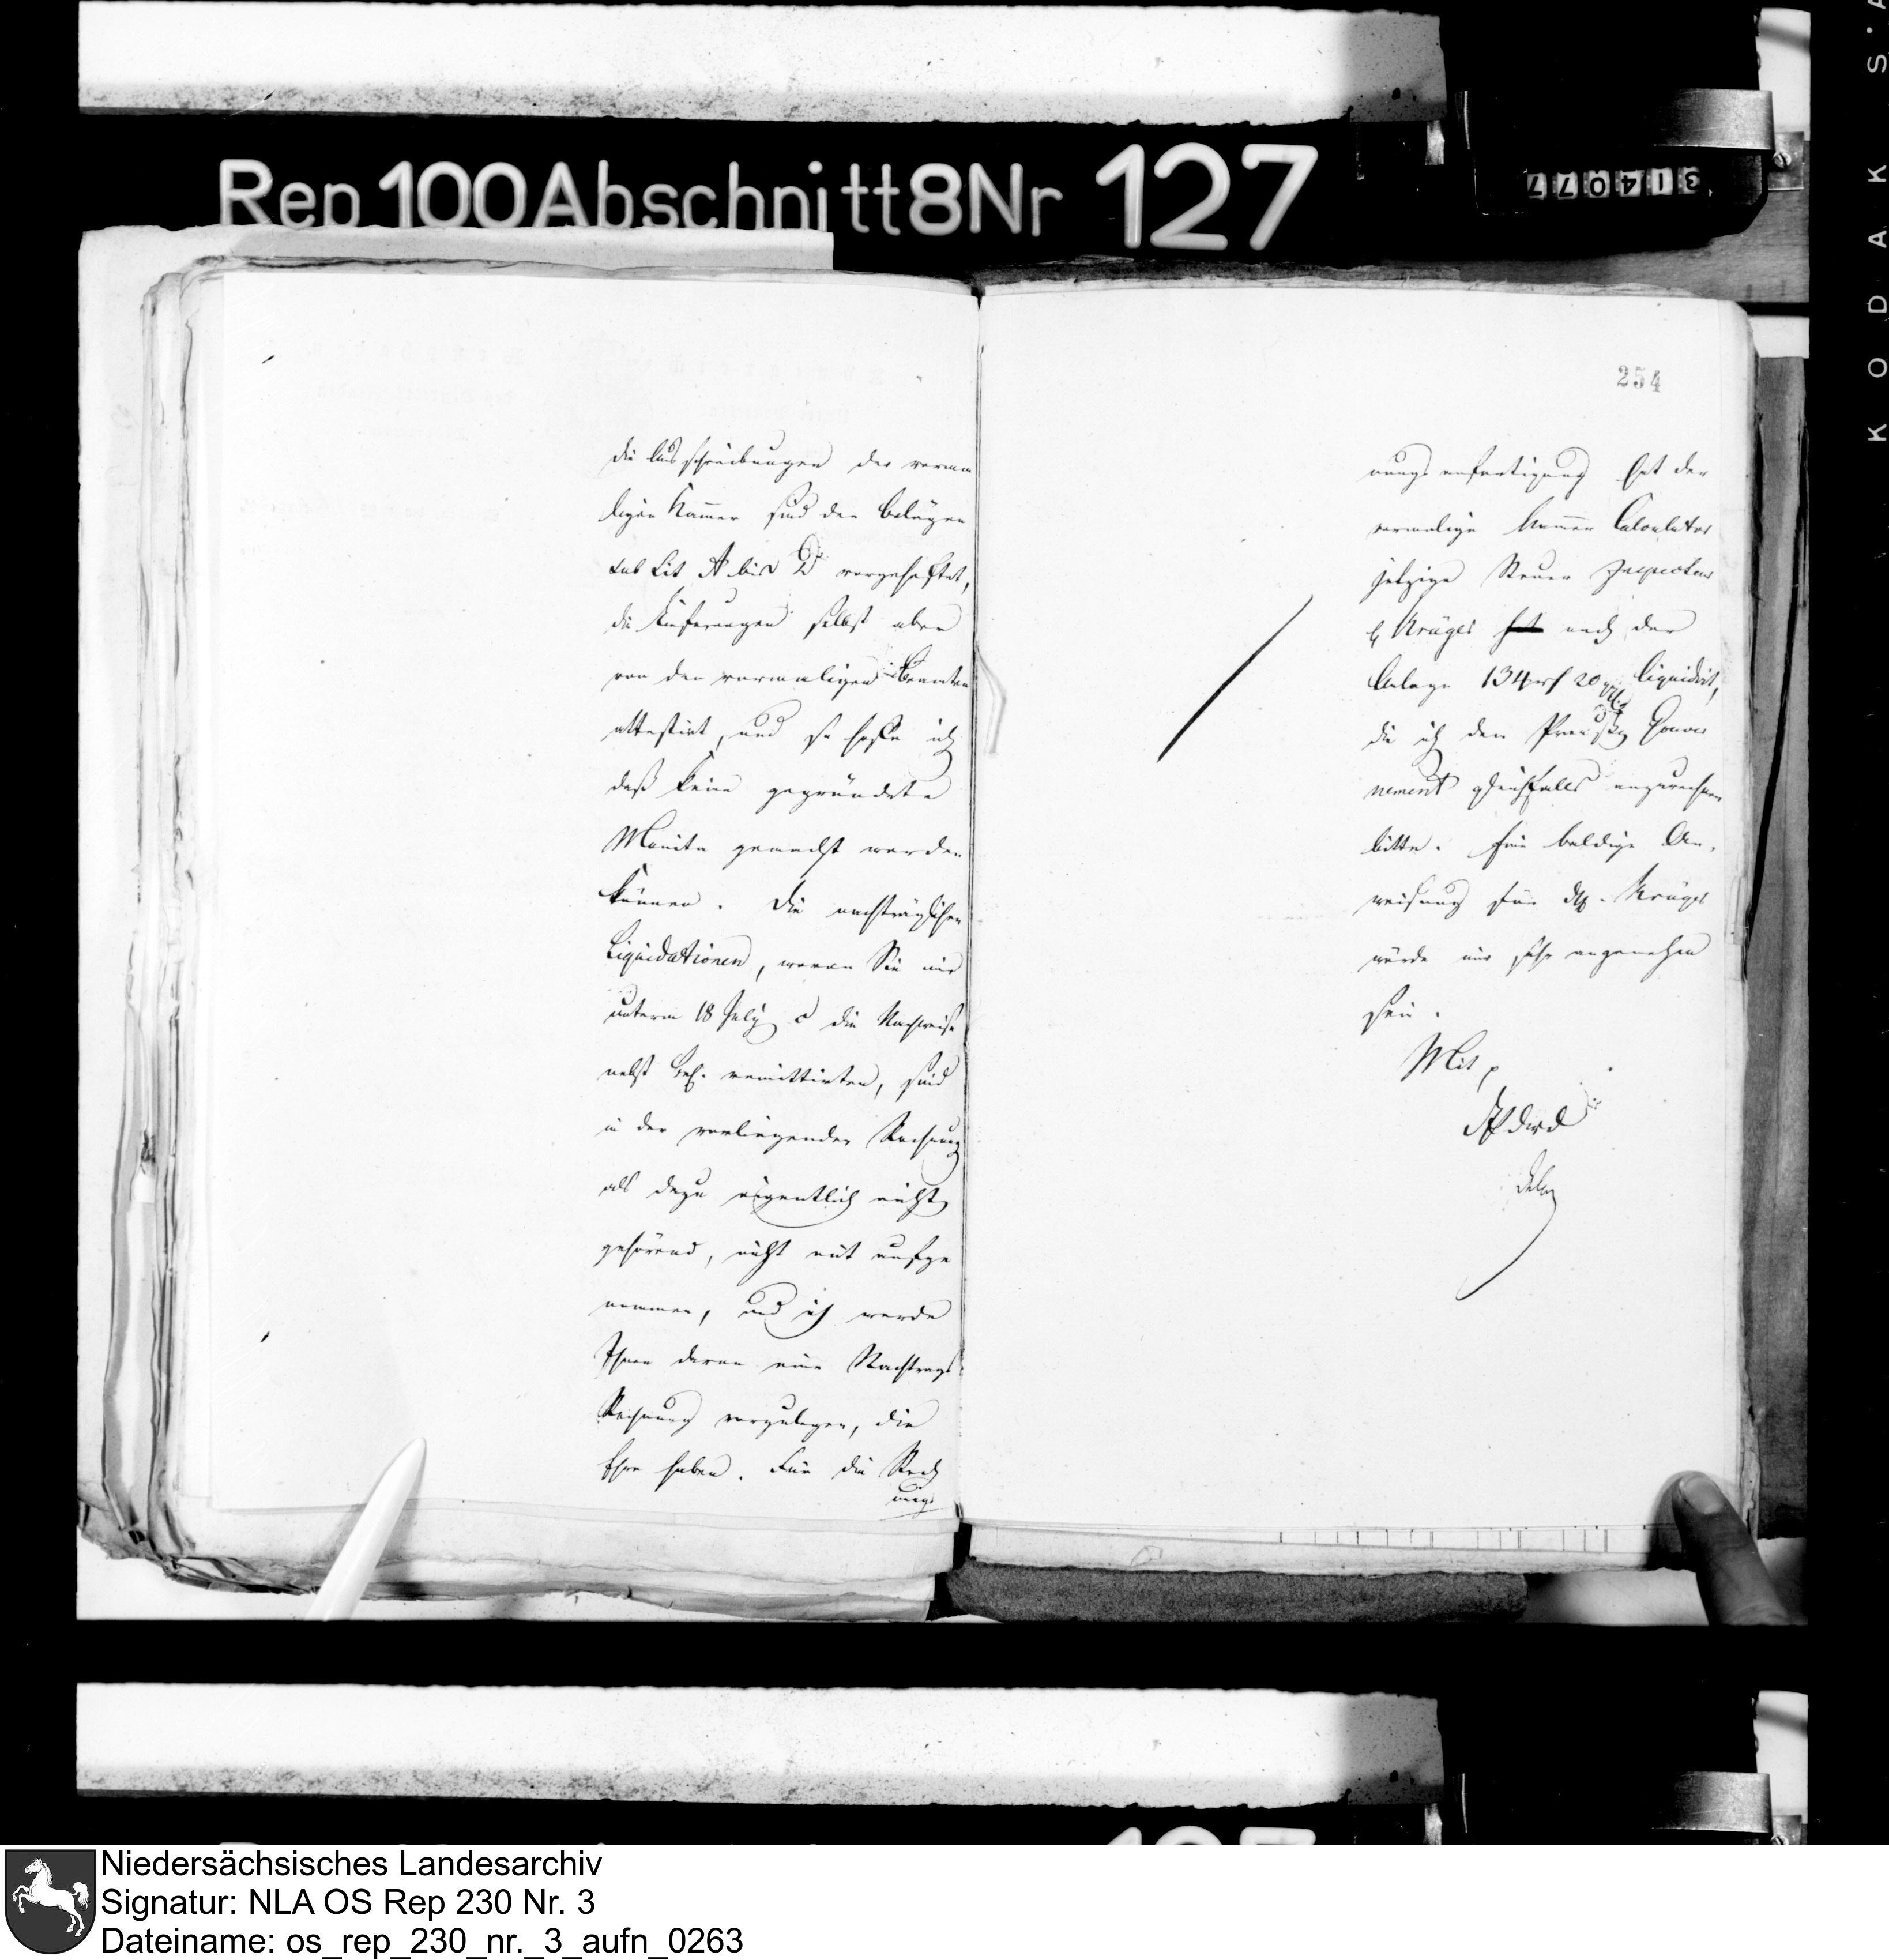 KODAK S.A
Rep 100 Abschnitt 8 Nr 127
314077
die Ausschreibungen der vorma
ligen Kam̄er sind den Belägen
sub Lit A bis D vorgeheftet,
die Lieferungen selbst aber
von den vormaligen Beamten
attestirt, und so hoffe ich
daß keine gegründete
Monita gemacht werden
können. Die nachträglichen
Liquidationen, wovon Sie mir
unterm 18 July c die Nachweise
nebst Bel. remittirten, sind
in der vorliegenden Rechnung
als dazu eigentlich nicht
gehörend, nicht mit aufge
nommen, und ich werde
Ihnen davon eine Nachtrags
Rechnung vorzulegen, die
Ehre haben. Für die Rech
nungs
254
nungsanfertigung hat der
vormalige Kam̄er Calculator
jetzige Steuer Inspector
Krüger hat nach der
Anlage 134 rf 20 liquidirt,
die ich dem Preuß Gouver
nement gleichfalls anzurechnen
bitte. Eine baldige An,
weisung für Krüger
würde mir sehr angenehm
sein.
Mit p
Niedersächsisches Landesarchiv
Signatur: NLA OS Rep 230 Nr. 3
Dateiname: os_rep_230_nr._3_aufn_0263